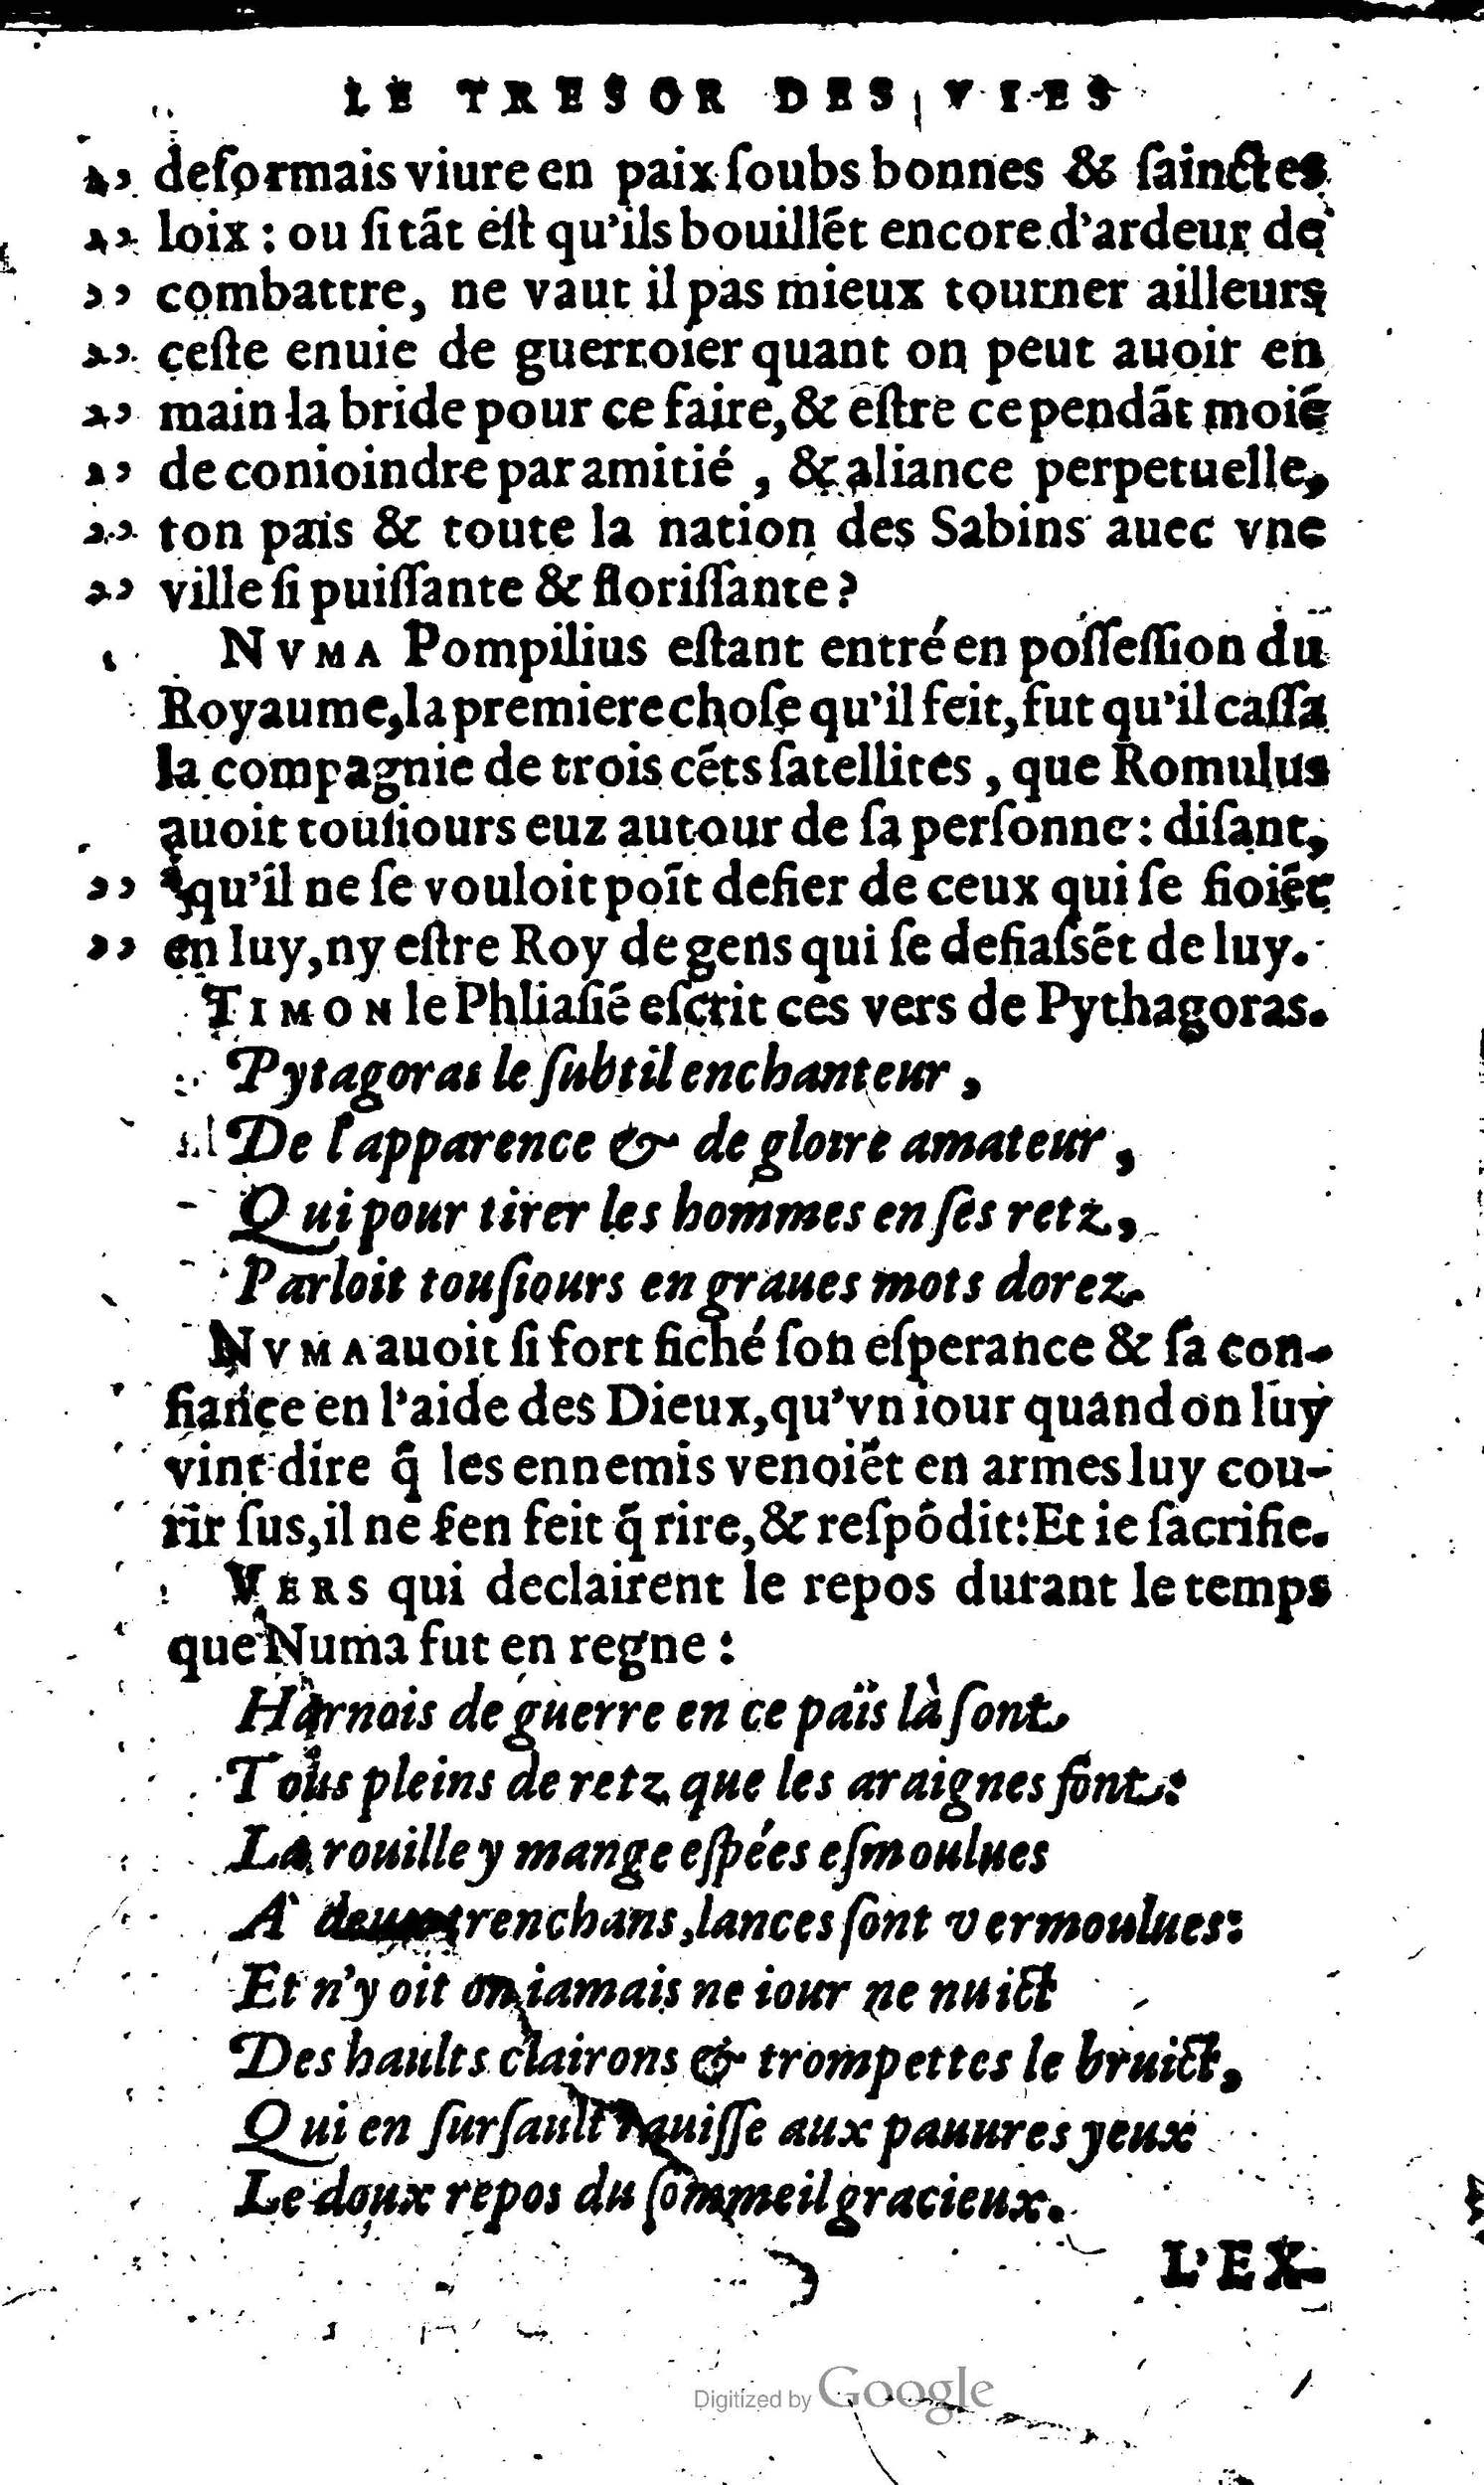 LE TRESOR DES VIES
,, deſormais viure en paix ſoubs bonnes & ſainctes
,, loix : ou ſi tãt eſt qu'ils bouillẽt encore d'ardeur de
,, combattre, ne vaut il pas mieux tourner ailleurs
,, ceſte enuie de guerroier quant on peut auoir en
,, main la bride pour ce faire, & eſtre ce pendãt moiẽ
,, de conioindre par amitié , & aliance perpetuelle,
,, ton païs & toute la nation des Sabins auec vne
,, ville ſi puiſſante & floriſſante?
NVMA Pompilius eſtant entré en poſſeſſion du
Royaume, la premiere choſe qu'il feit, fut qu'il caſſa
la compagnie de trois cẽts ſatellites , que Romulus
auoit touſiours euz autour de ſa perſonne : diſant,
,, qu'il ne ſe vouloit poĩt defier de ceux qui ſe fioiẽt
,, en luy, ny eſtre Roy de gens qui ſe defiaſsẽt de luy.
TIMON le Phliaſiẽ eſcrit ces vers de Pythagoras.
Pytagoras le ſubtil enchanteur ,
De l'apparence & de gloire amateur ,
Qui pour tirer les hommes en ſes retz,
Parloit touſiours en graues mots dorez.
NVMA auoit ſi fort fiché ſon eſperance & ſa con-
fiance en l'aide des Dieux, qu'vn iour quand on luy
vint dire q̃ les ennemis venoiẽt en armes luy cou-
rir ſus, il ne ſen feit q̃ rire, & reſpõdit: Et ie ſacrifie.
VERS qui declairent le repos durant le temps
que Numa fut en regne :
Harnois de guerre en ce païs là ſont
Tous pleins de retz que les araignes font:
La rouille y mange eſpées eſmoulues
A deux trenchans, lances ſont vermoulues:
Et n'y oit on iamais ne iour ne nuict
Des haults clairons & trompettes le bruict,
Qui en ſurſault rauiſſe aux pauures yeux
Le doux repos du ſommeil gracieux.
L'EX-
Digitized by Google